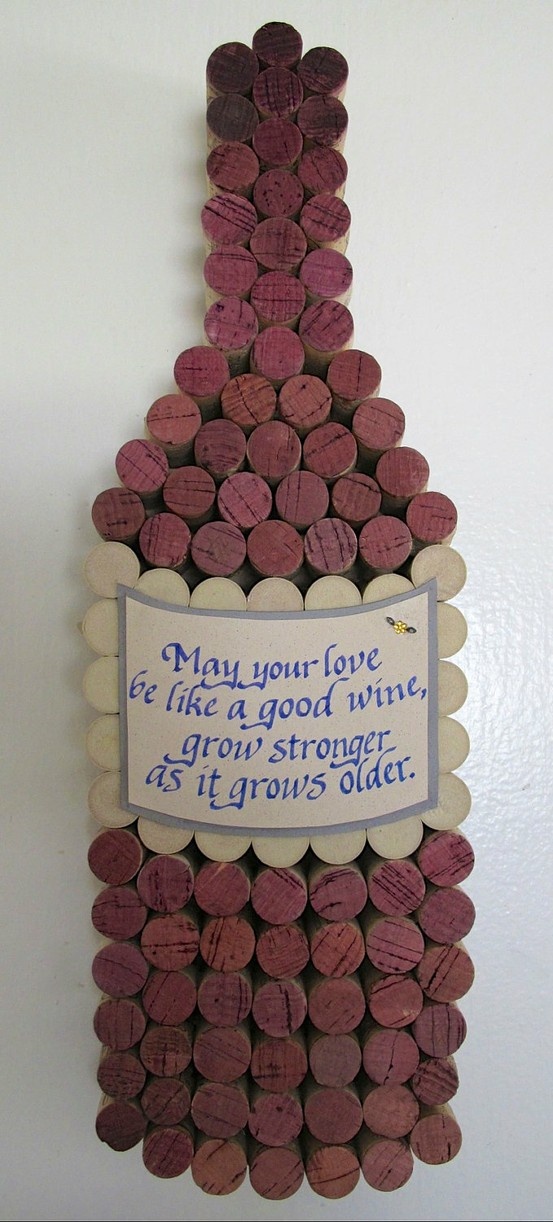 May your love
be like a good wine,
grow stronger
as it grows older.